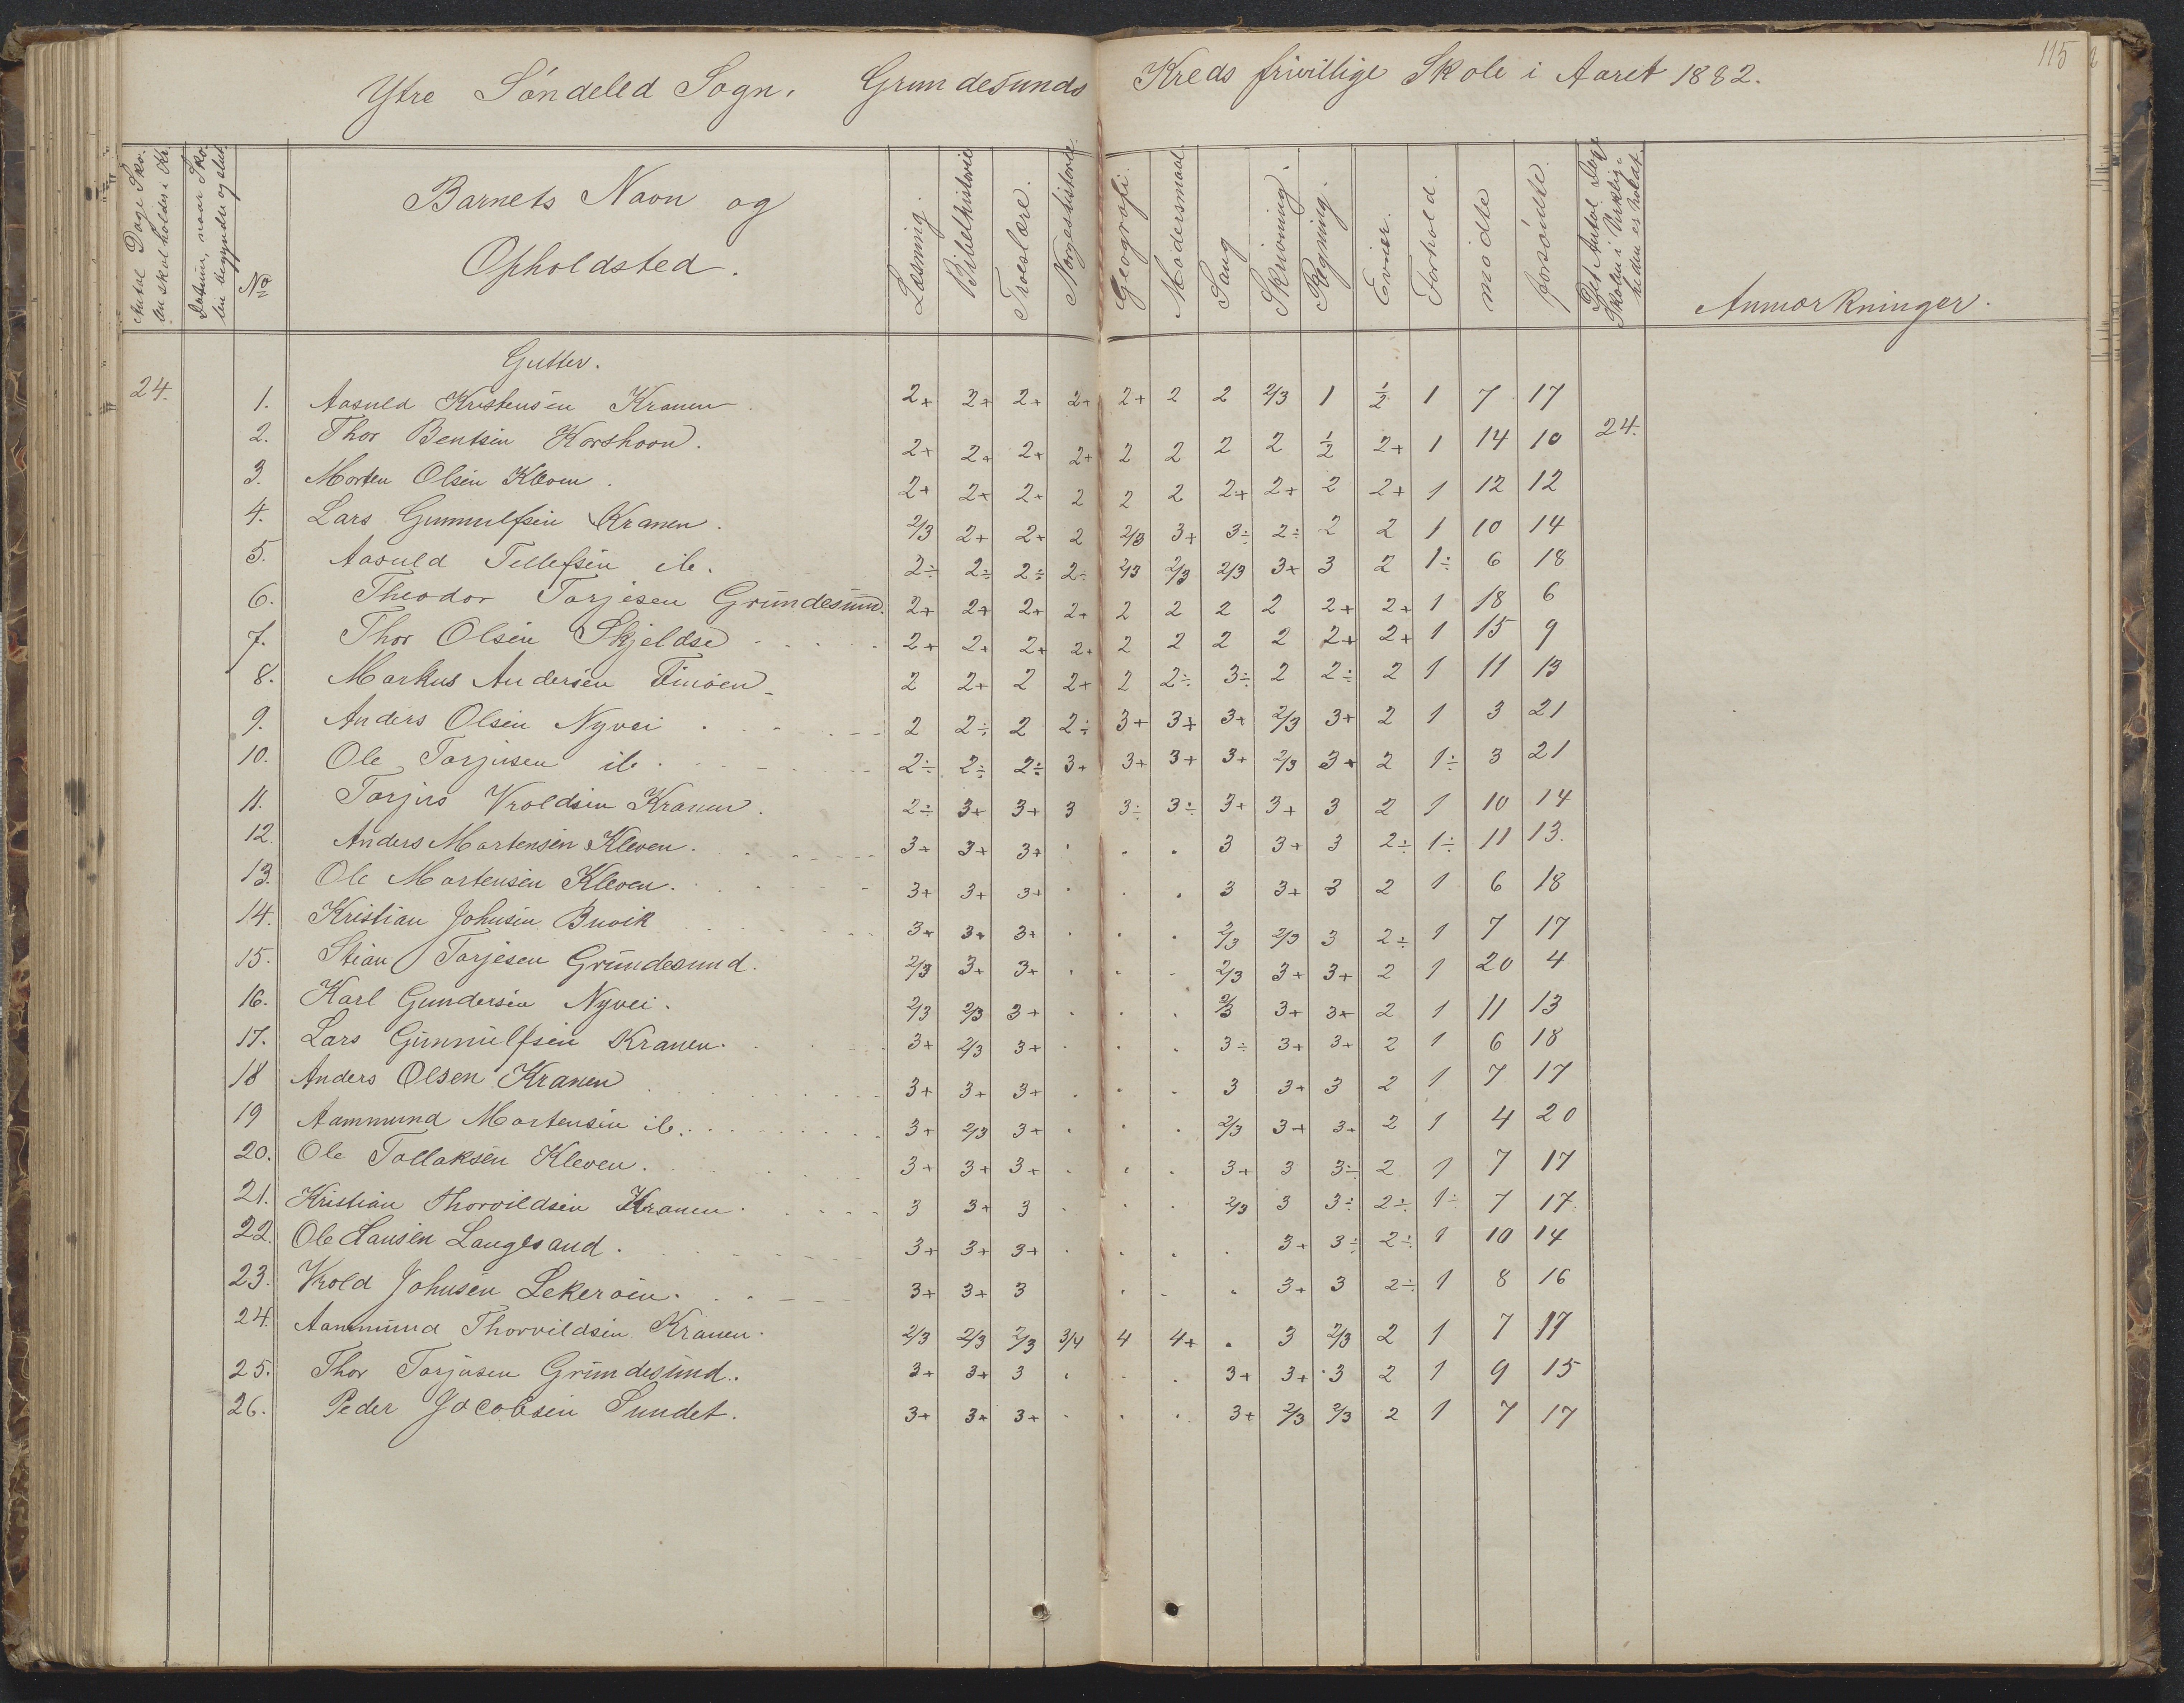 115
Ytre Söndeled Sogn. Grundesunds Kreds frivillige Skole i Aaret 1882.
Antal Dage Skolen skal holdes i Kr.
Datum, naar Skolen begynder og slut.
No
Barnets Navn og
Opholdsted.
Læsning.
Bibelhistorie
Troeslære.
Norgeshistorie
Geografi.
Modersmaal.
Sang
Skrivning.
Regning.
Evner.
Forhold.
mödte
forsömte.
Det Antal Dage Skolen i Virkeligheden er holdt.
Anmærkninger.
Gutter.
24. 1. Aasuld Kristensen Kranen. 2+ 2+ 2+ 2+ 2+ 2 2 2/3 1 1/2 1 7 17
2. Thor Bentsen Korshavn. 2+ 2+ 2+ 2+ 2 2 2 2 1/2 2+ 1 14 10 24.
3. Morten Olsen Kleven. 2+ 2+ 2+ 2 2 2 2+ 2+ 2 2+ 1 12 12
4. Lars Gunnulfsen Kranen. 2/3 2+ 2+ 2 2/3 3+ 3÷ 2÷ 2 2 1 10 14
5. Aasuld Tellefsen ib. 2÷ 2÷ 2÷ 2÷ 2/3 2/3 2/3 3+ 3 2 1÷ 6 18
6. Theodor Torjesen Grundesund. 2+ 2+ 2+ 2+ 2 2 2 2 2+ 2+ 1 18 6
7. Thor Olsen Skjeldsö 2+ 2+ 2+ 2+ 2 2 2 2 2+ 2+ 1 15 9
8. Markus Andersen Finöen 2 2+ 2 2+ 2 2÷ 3÷ 2 2÷ 2 1 11 13
9. Anders Olsen Nyvei 2 2÷ 2 2÷ 3+ 3+ 3+ 2/3 3+ 2 1 3 21
10. Ole Torjusen ib. 2÷ 2÷ 2÷ 3+ 3+ 3+ 3+ 2/3 3+ 2 1÷ 3 21
11. Torjus Vroldsen Kranen. 2÷ 3+ 3+ 3 3÷ 3÷ 3+ 3+ 3 2 1 10 14
12. Anders Mortensen Kleven. 3+ 3+ 3+ . . . 3 3+ 3 2÷ 1÷ 11 13.
13. Ole Mortensen Kleven. 3+ 3+ 3+ . . . 3 3+ 3 2 1 6 18
14. Kristian Johnsen Buvik 3+ 3+ 3+ . . . 2/3 2/3 3 2÷ 1 7 17
15. Stian Torjesen Grundesund. 2/3 3+ 3+ . . . 2/3 3+ 3+ 2 1 20 4
16. Karl Gundersen Nyvei. 2/3 2/3 3+ . . . 2/3 3+ 3+ 2 1 11 13
17. Lars Gunnulfsen Kranen. 3+ 2/3 3+ . . . 3÷ 3+ 3+ 2 1 6 18
18 Anders Olsen Kranen 3+ 3+ 3+ . . . 3 3+ 3 2 1 7 17
19 Aammund Mortensen ib. 3+ 2/3 3+ . . . 2/3 3+ 3+ 2 1 4 20
20. Ole Tollaksen Kleven. 3+ 3+ 3+ . . . 3+ 3 3÷ 2 1 7 17
21. Kristian Thorvildsen Kranen. 3 3+ 3 . . . 2/3 3 3÷ 2÷ 1÷ 7 17.
22. Ole Hansen Langesand. 3+ 3+ 3+ . . . . 3+ 3÷ 2÷ 1 10 14
23. Vrold Johnsen Lekeröen. 3+ 3+ 3 . . . 3+ 3 2÷ 1 8 16
24. Aanmund Thorvildsen Kranen. 2/3 2/3 2/3 3/4 4 4+ . 3 2/3 2 1 7 17
25. Thor Torjusen Grundesund. 3+ 3+ 3 . . . 3+ 3+ 3 2 1 9 15
26. Peder Jacobsen Sundet. 3+ 3+ 3+ . . . 3+ 2/3 2/3 2 1 7 17